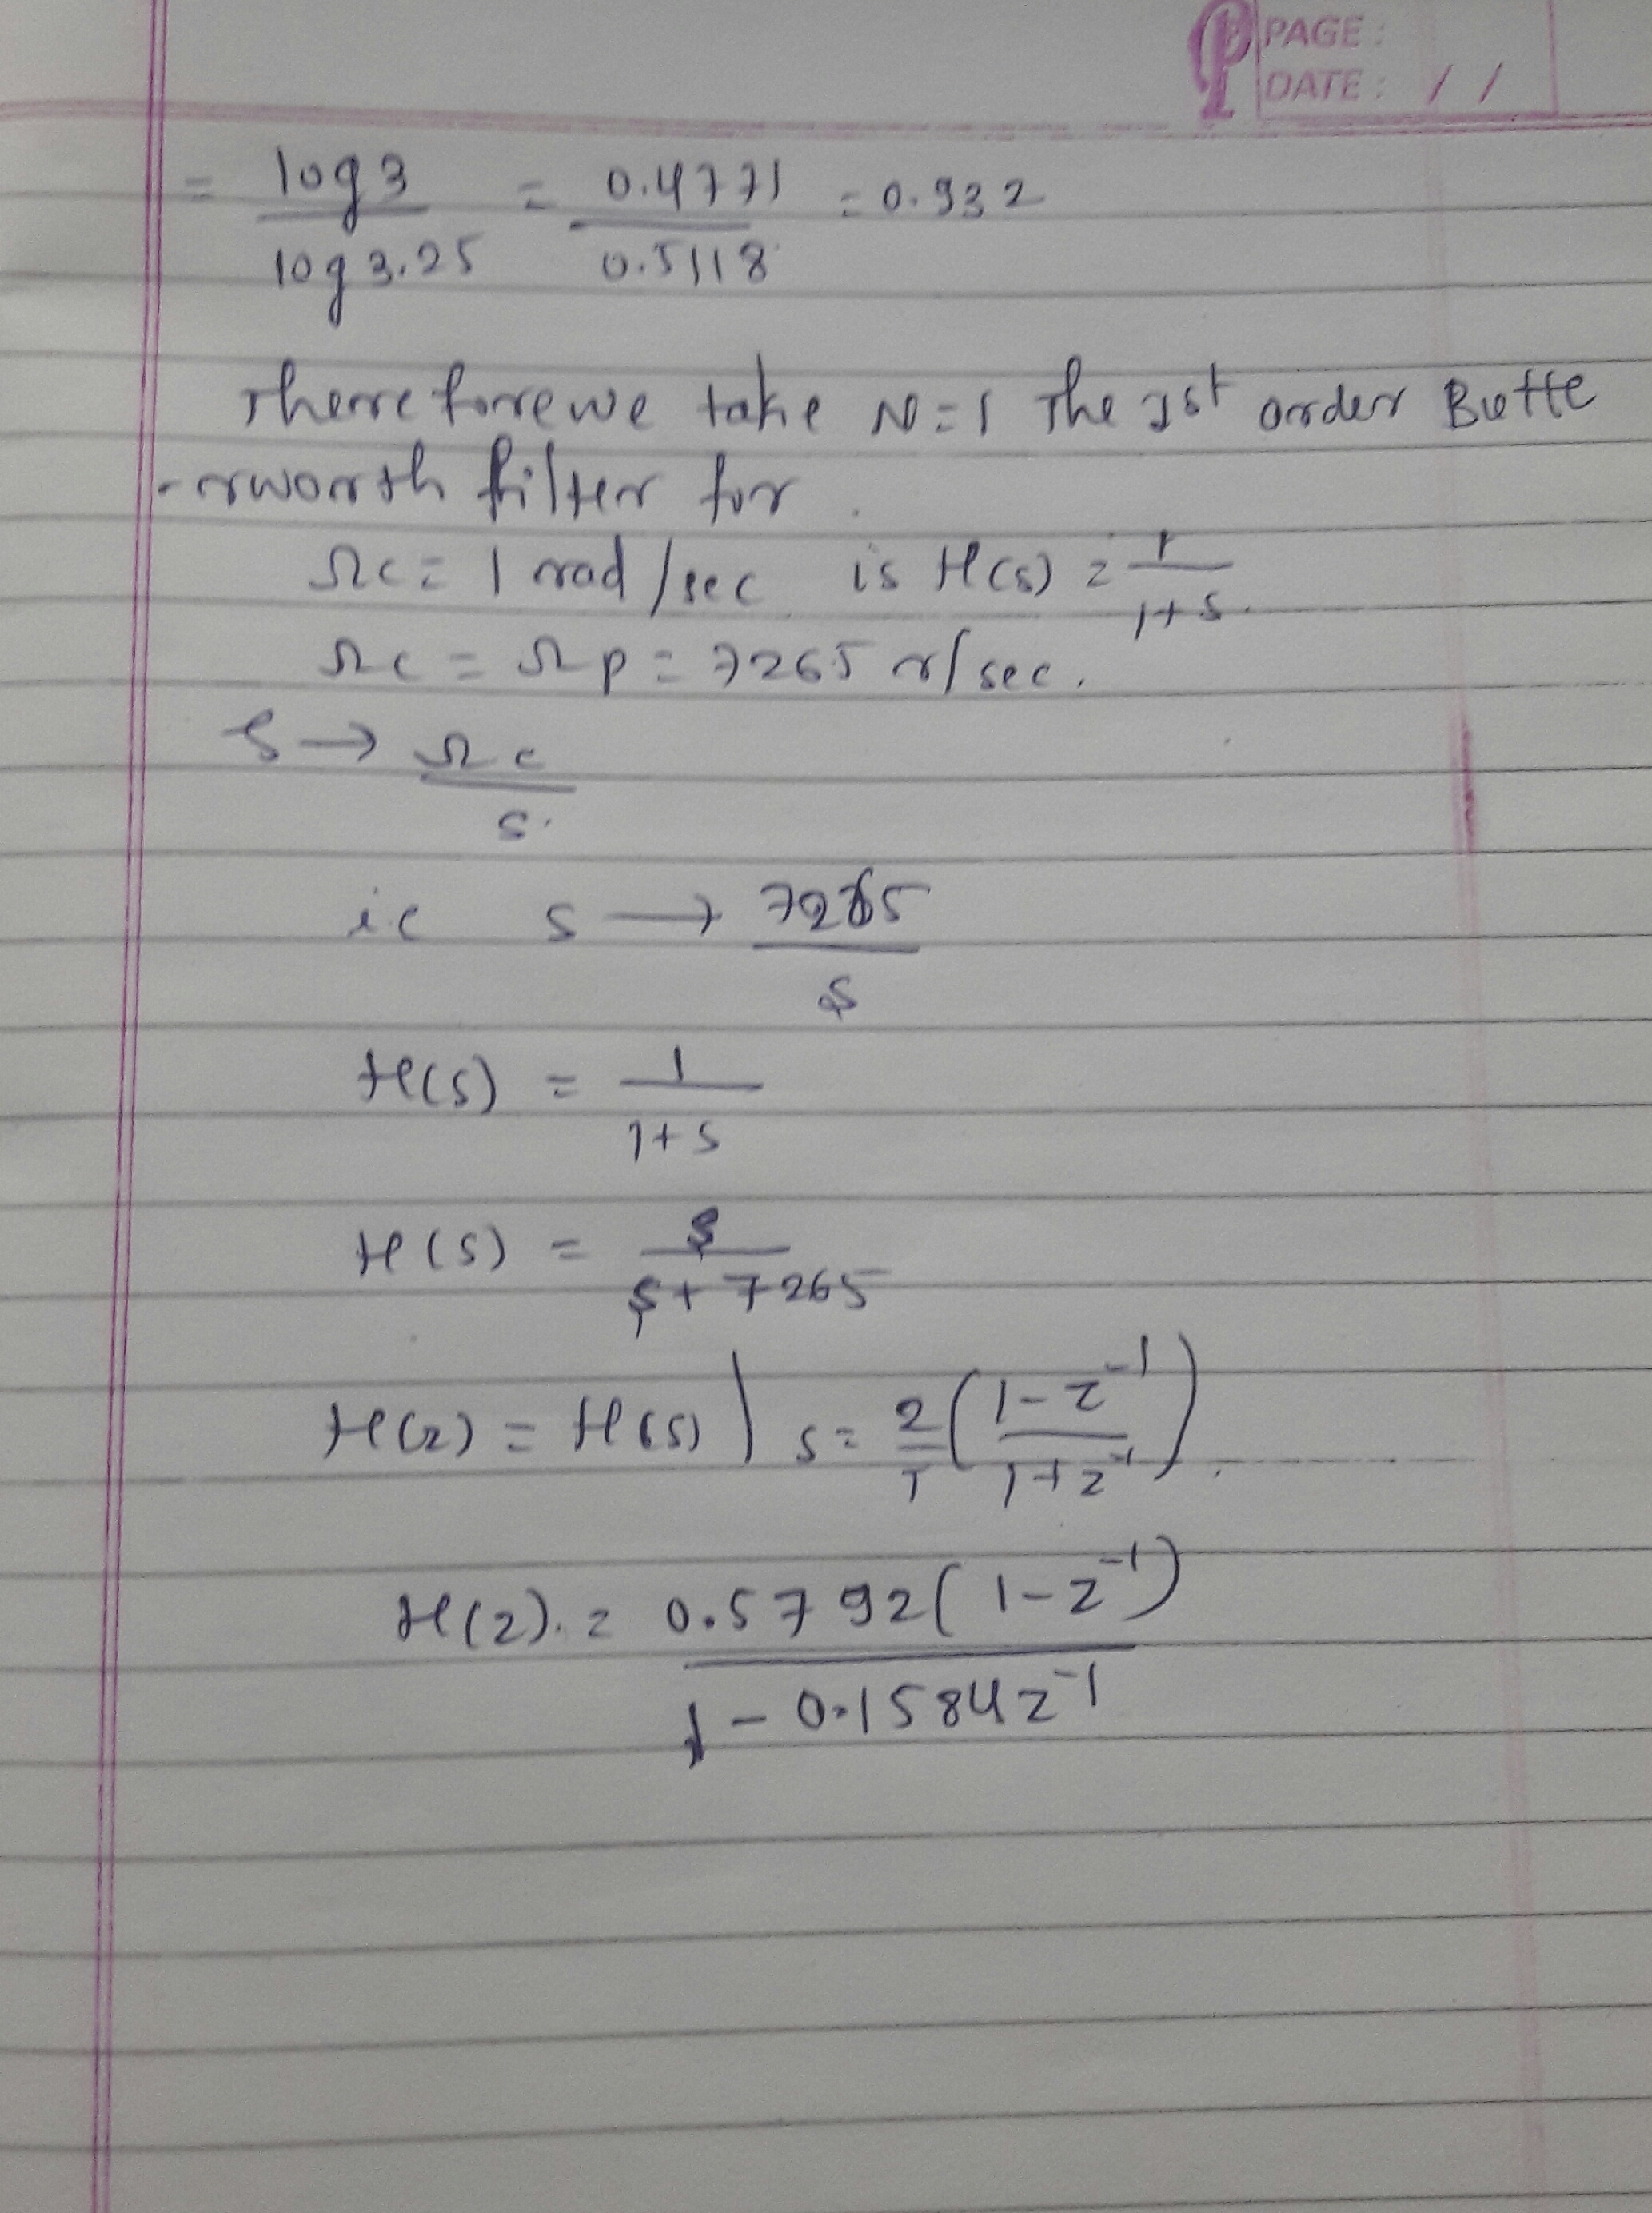 PAGE :
DATE : / /
= log 3 / log 3.25 = 0.4771 / 0.5118 = 0.932
Therefore we take N=1 The 1st order Butte
-rworth filter for
Ωc = 1 rad/sec is H(s) = 1 / 1+s.
Ωc = Ωp = 7265 r/sec.
s → Ωc / s.
ie s → 7265 / s
H(s) = 1 / 1+s
H(s) = s / s+7265
H(z) = H(s) | s = 2/T (1-z⁻¹ / 1+z⁻¹).
H(z) = 0.5792(1-z⁻¹) / 1-0.1584z⁻¹